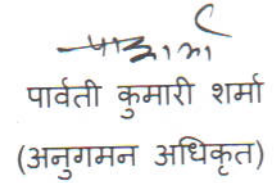 पार्वती कुमारी शर्मा
(अनुगमन अधिकृत)